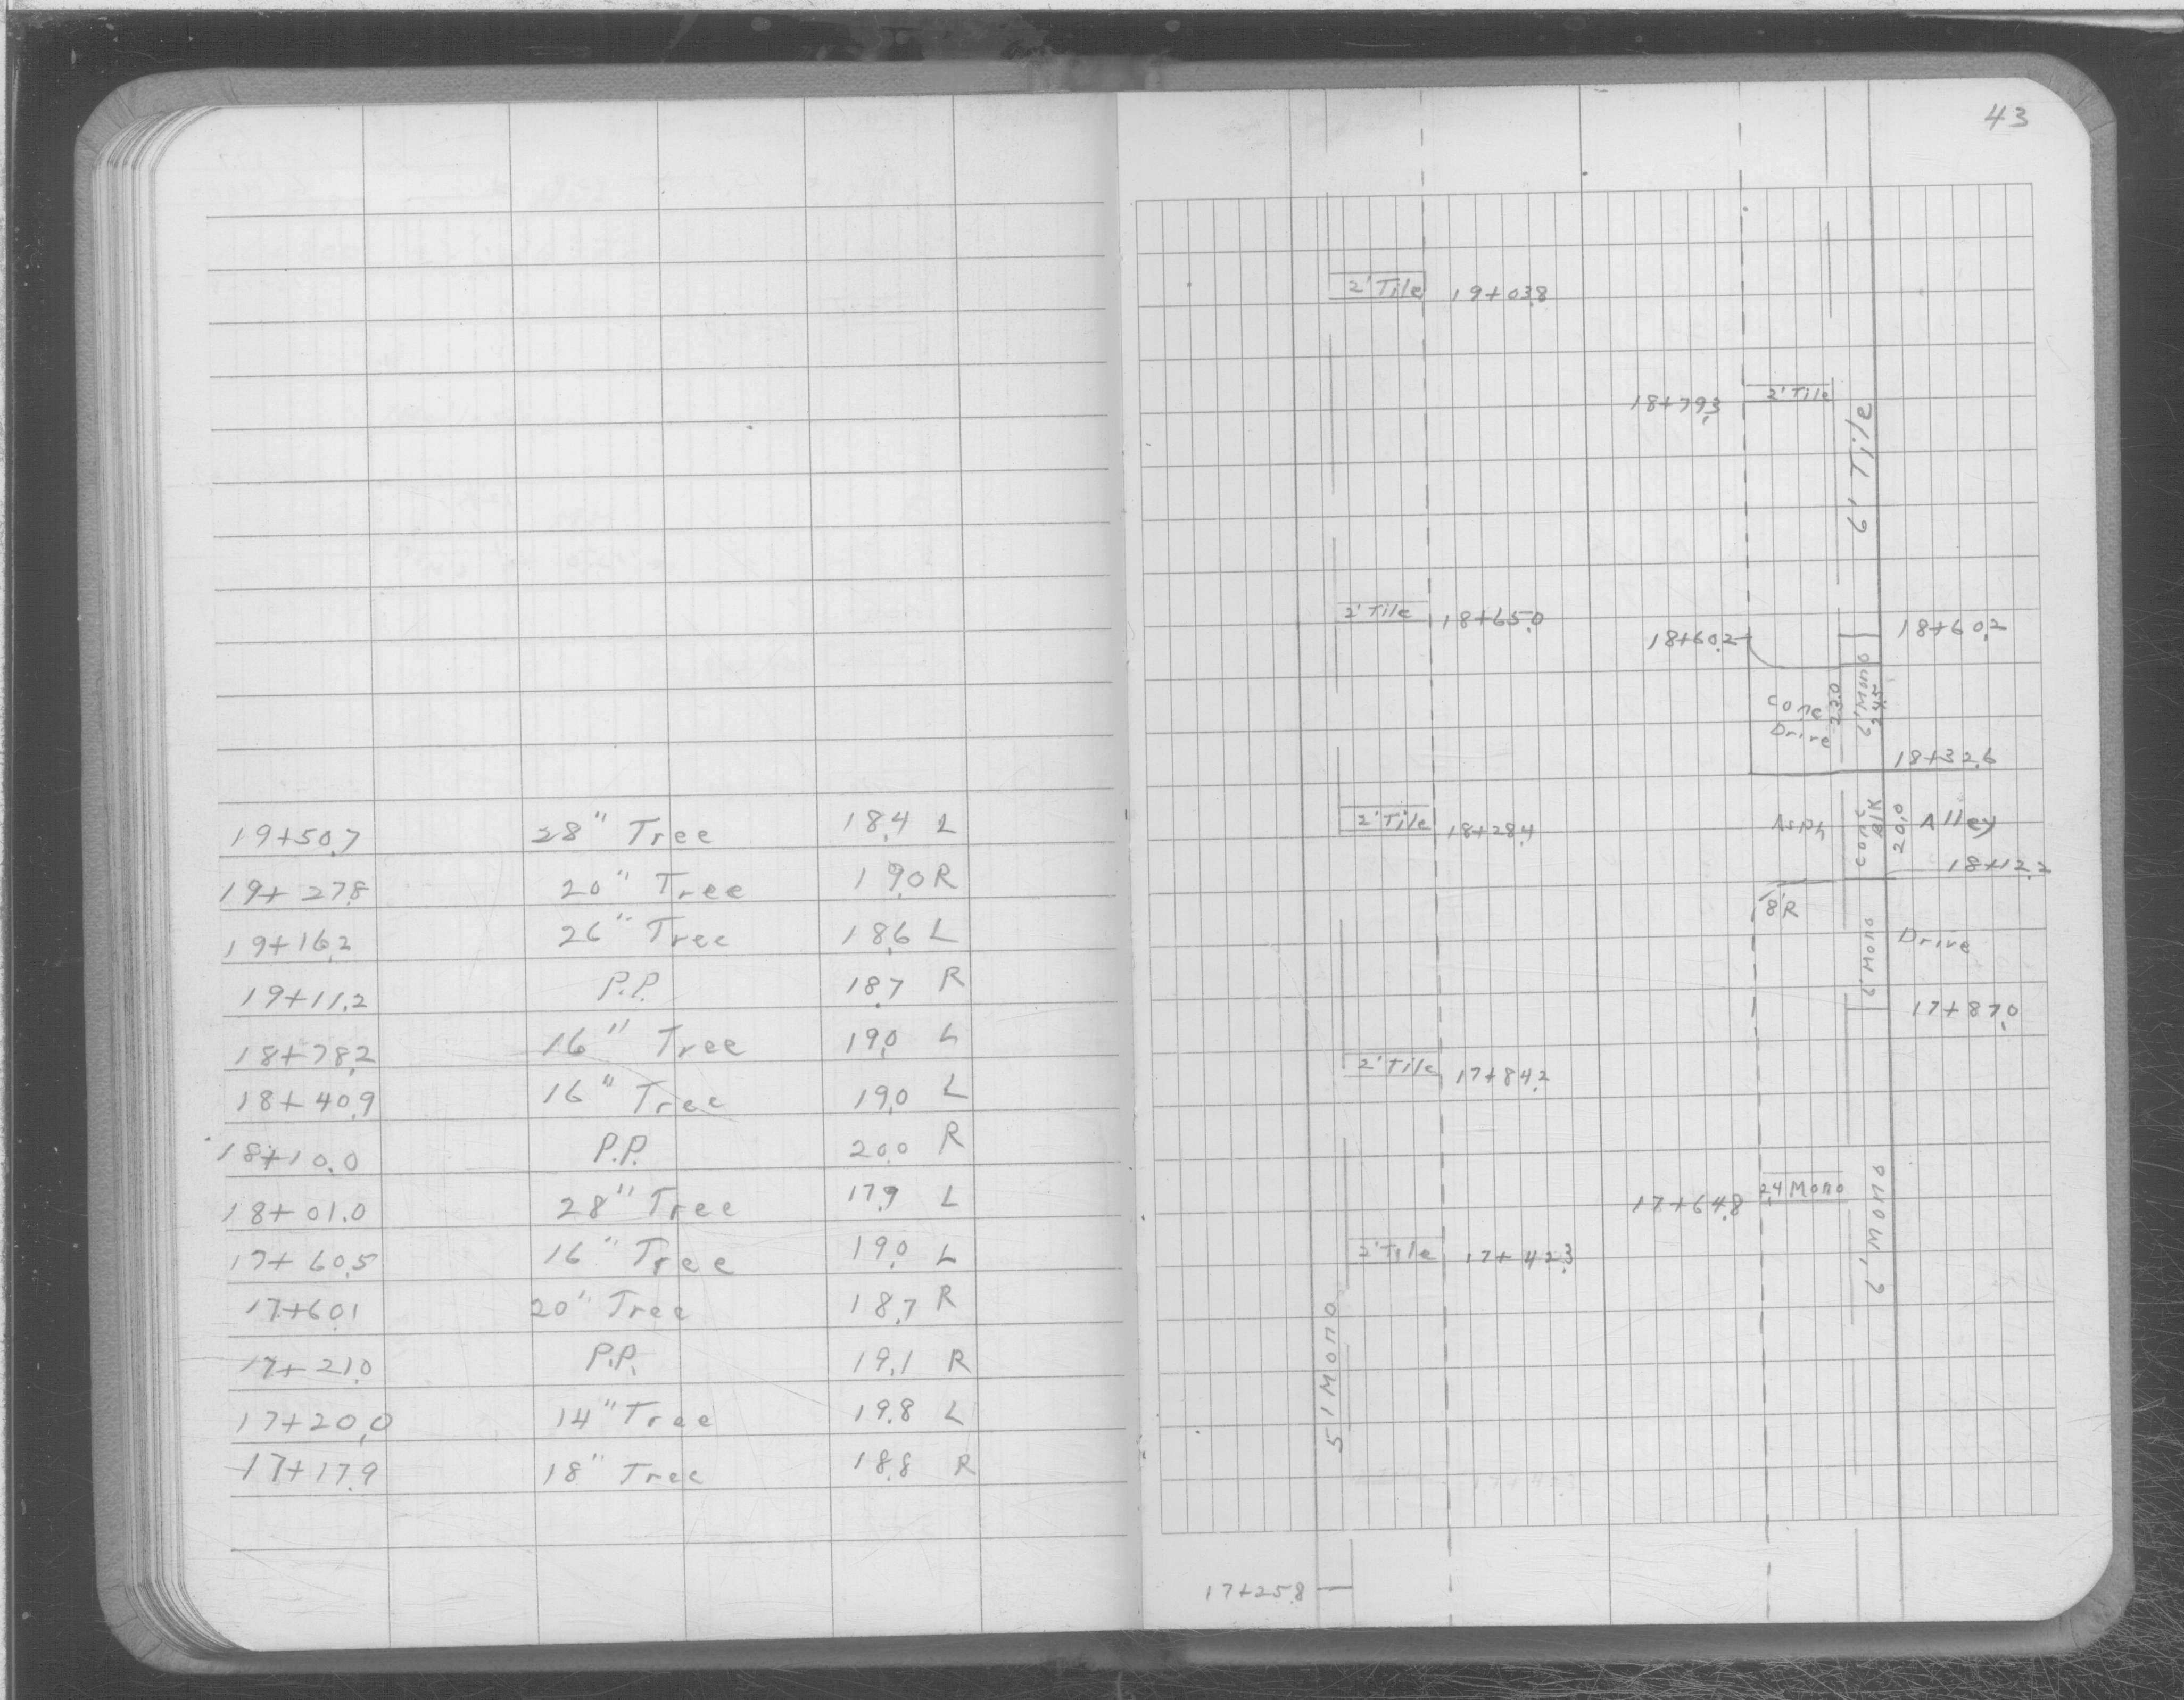 19+50.7 28" Tree 18.4 L
19+27.8 20" Tree 19.0 R
19+16.2 26" Tree 18.6 L
19+11.2 P.P. 18.7 R
18+78.2 16" Tree 19.0 L
18+40.9 16" Tree 19.0 L
18+10.0 P.P. 20.0 R
18+01.0 28" Tree 17.9 L
17+60.5 16" Tree 19.0 L
17+60.1 20" Tree 18.7 R
17+21.0 P.P. 19.1 R
17+20.0 14" Tree 19.8 L
17+17.9 18" Tree 18.8 R
43
2' Tile 19+03.8
18+79.3 2' Tile
6' Tile
2' Tile 18+65.0
18+60.2
18+60.2
Conc
Drive
22.0
6' Mono
24.5
18+32.6
2' Tile 18+28.4
Asph
Conc
Blk
20.0
Alley
18+12.2
8'R
6' Mono
Drive
17+87.0
2' Tile 17+84.2
17+64.8 2.4 Mono
6' Mono
2' Tile 17+42.3
5.1 Mono
17+25.8